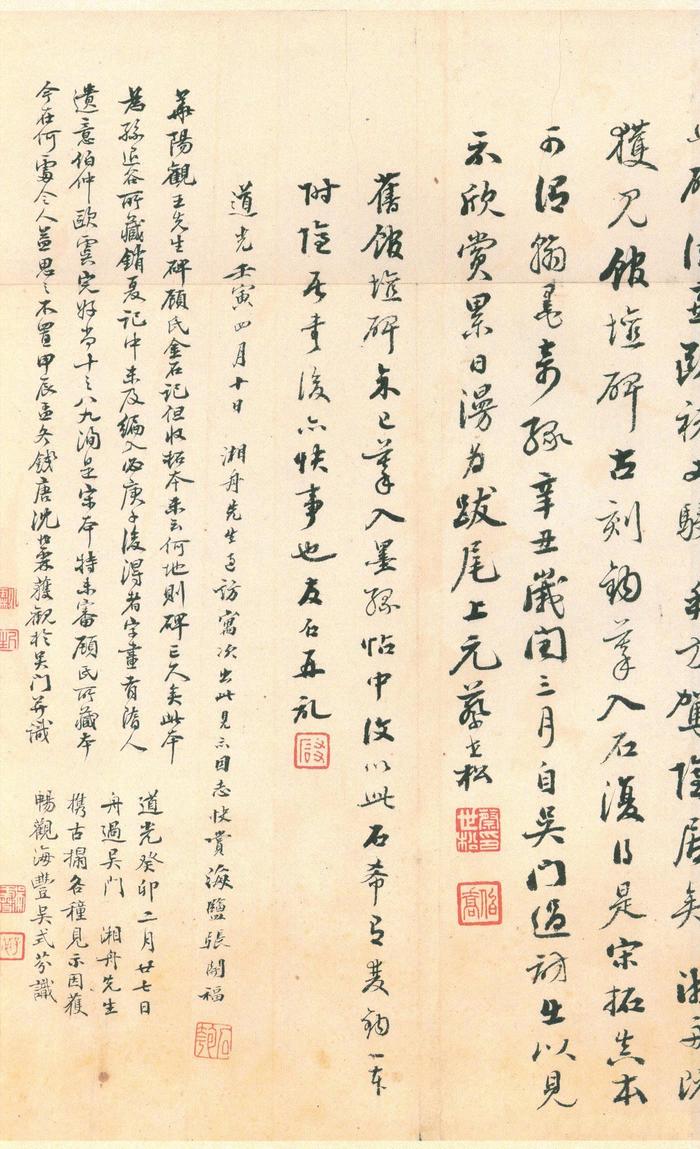 隱居矣 湘舟既
獲見館壇碑古刻鈎摹入石復得是宋拓真本
可謂翰墨奇緣辛丑歲閏三月自吳門過訪出以見
示欣賞累日漫為跋尾上元蔡世松
蔡印世松
舊館壇碑余已摹入墨緣帖中復以此石希有雙鈎一本
附隱居書後亦快事也友石再記
道光壬寅四月十日 湘舟先生過訪寓次出此見示因志快賞海鹽張開福
華陽觀王先生碑顧氏金石記但收拓本未云何地則碑亡久矣此本
為孫退谷所藏銷夏記中未及編入必庚子後得者字畫有隋人
遺意伯仲歐虞完好尚十之八九洵是宋本特未審顧氏所藏本
今在何處令人益思之不置甲辰孟冬錢唐沈 霖獲觀於吳門并識
道光癸卯二月廿七日
舟過吳門 湘舟先生
携古搨各種見示因獲
暢觀海豐吳式芬識